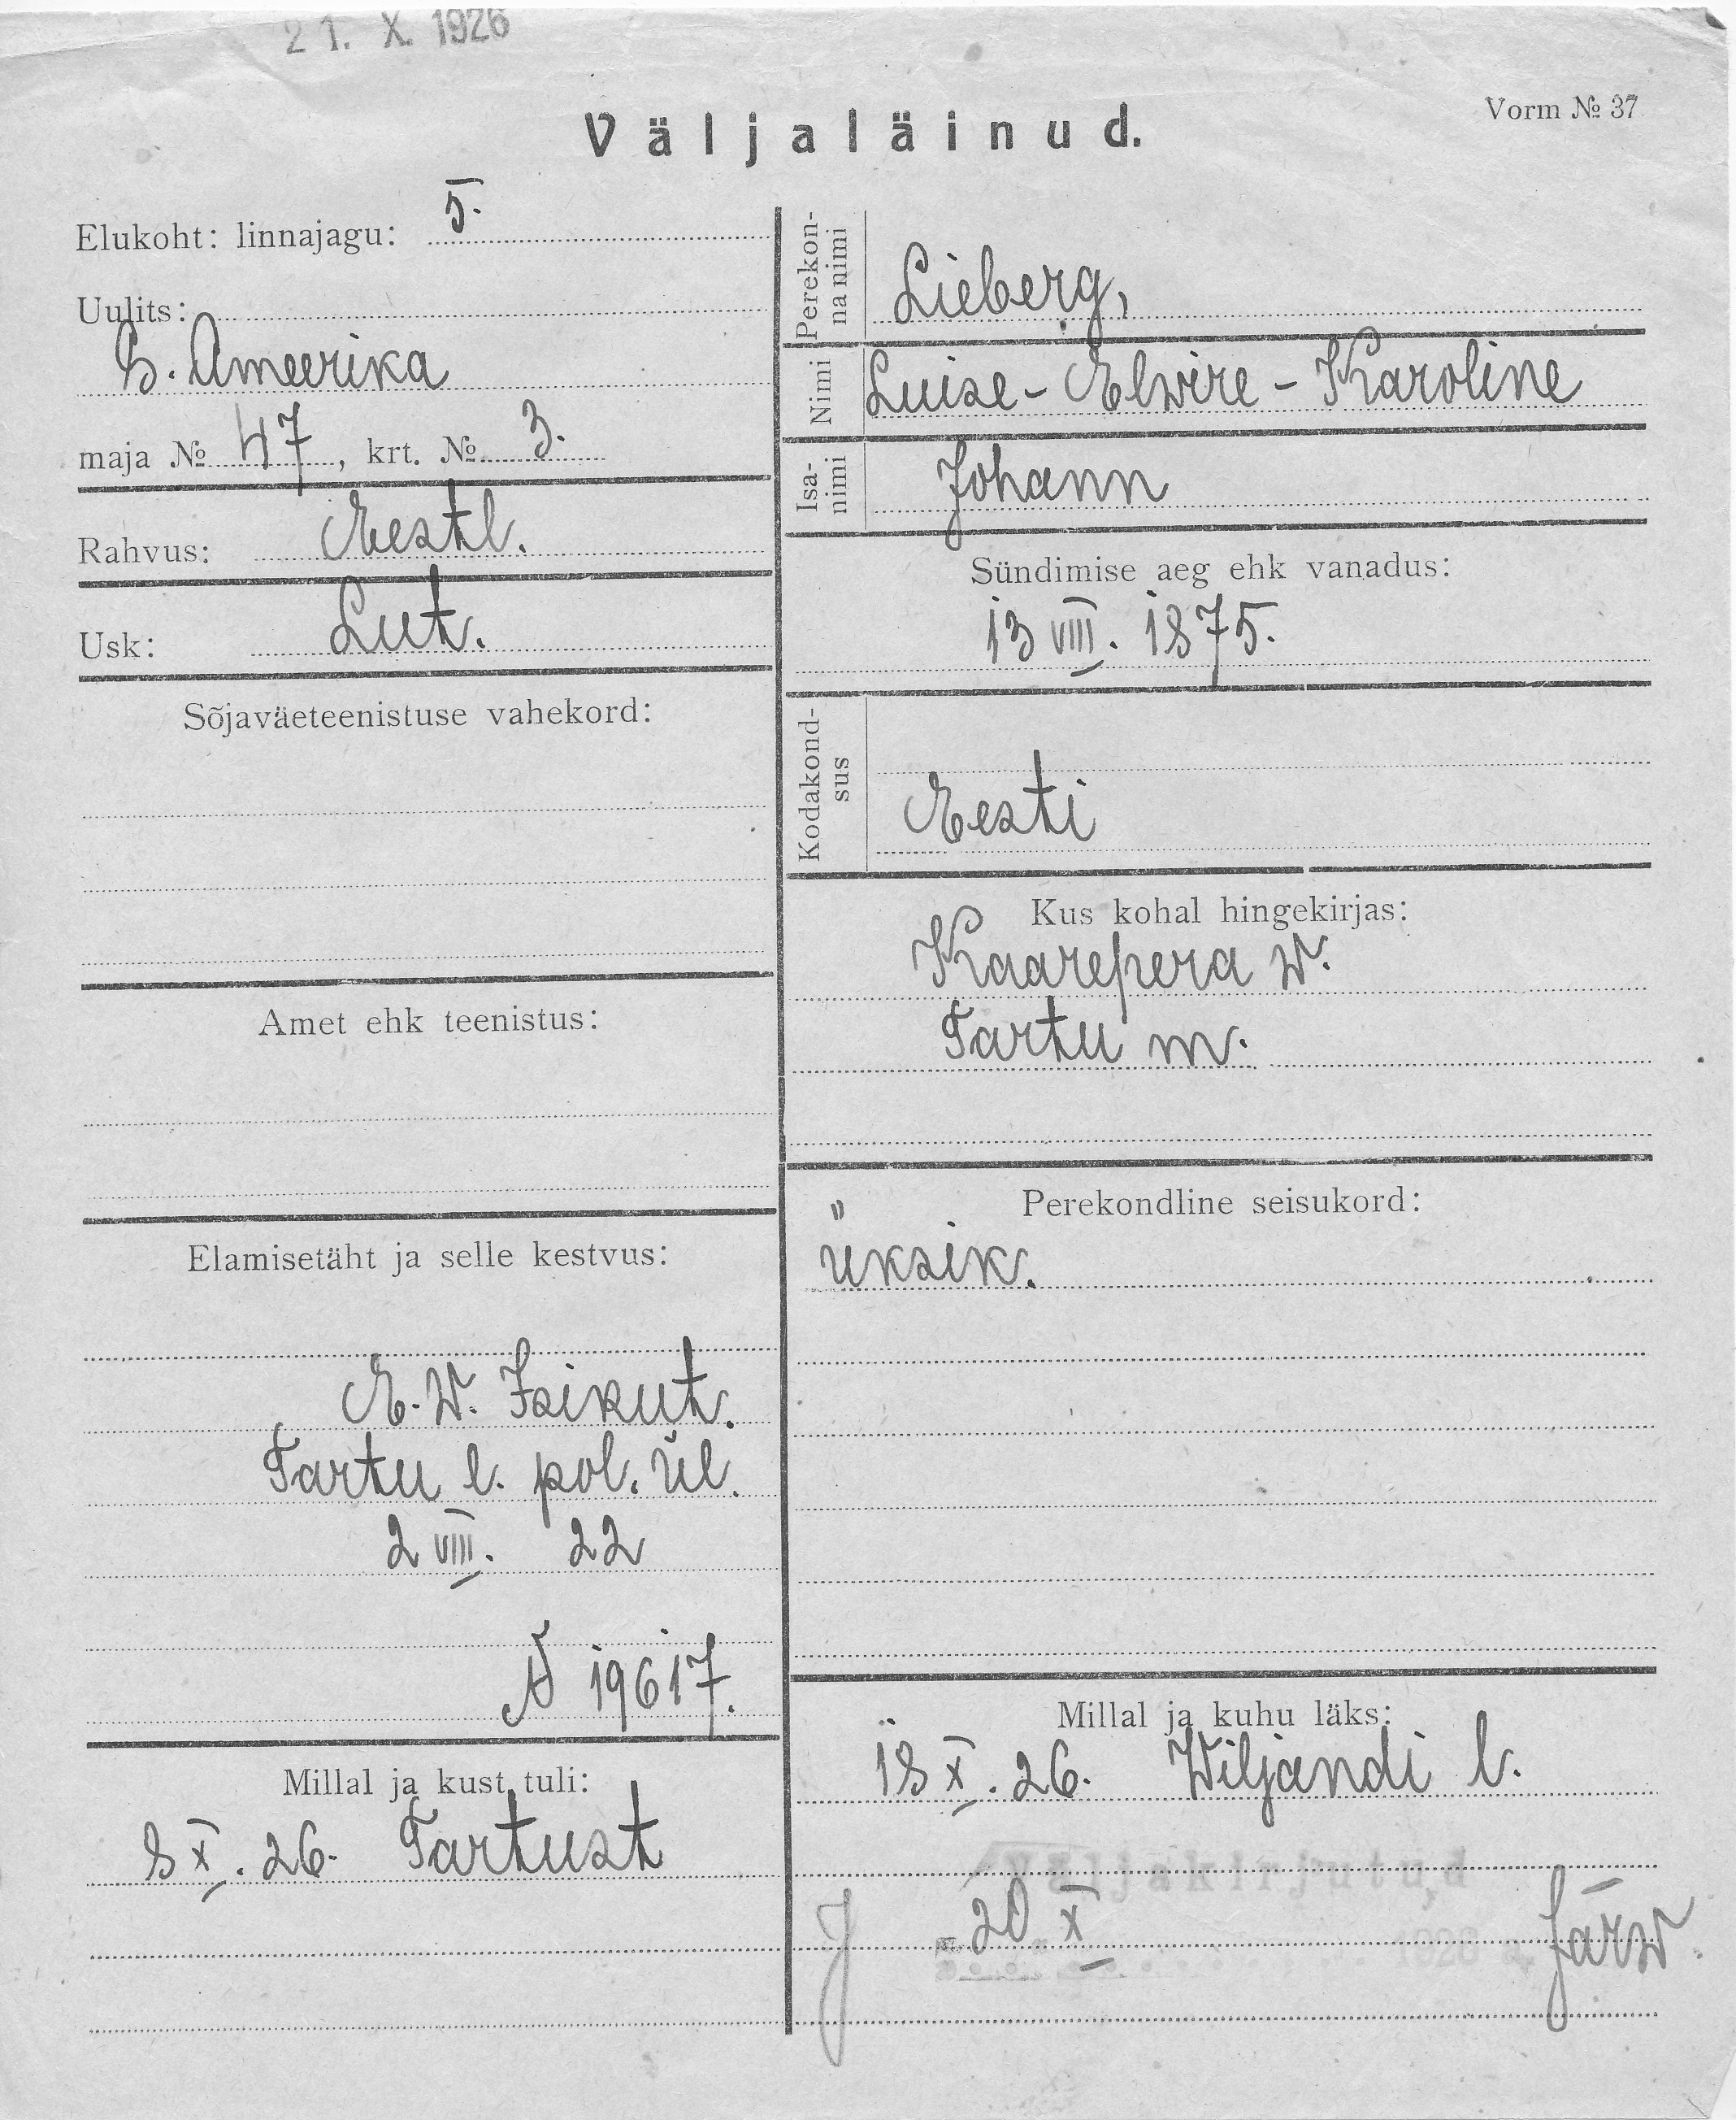 21. X. 1926
Väljaläinud.
Vorm № 37
Elukoht: linnajagu: 5.
Uulits:
S. Ameerika
maja № 47, krt. № 3.
Rahvus: Eestl.
Usk: Lut.
Sõjaväeteenistuse vahekord:
Amet ehk teenistus:
Elamisetäht ja selle kestvus:
E. W. Isikut.
Tartu l. pol. ül.
2 VIII. 22
N 19617.
Millal ja kust tuli:
8 X. 26. Tartust
Perekon-
na nimi
Lieberg,
Nimi
Luise - Elwire - Karoline
Isa-
nimi
Johann
Sündimise aeg ehk vanadus:
13 VIII. 1875.
Kodakond-
sus
Eesti
Kus kohal hingekirjas:
Kaarepera w.
Tartu m.
Perekondline seisukord:
üksik.
Millal ja kuhu läks:
18 X. 26. Wiljandi l.
Väljakirjutud
20 X 1926 a. Järw.
J